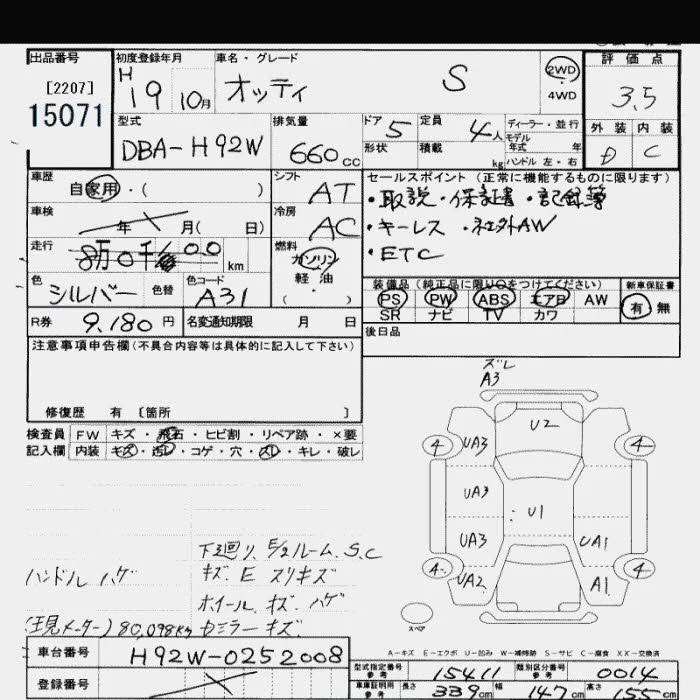 出品番号
[2207]
15071
初度登録年月
H 19 10月
車名・グレード
オッティ S
2WD
4WD
評価点
3.5
型式
DBA-H92W
排気量
660cc
ドア 5
定員 4人
形状
積載 kg
ディーラー・並行
モデル年式 年
ハンドル 左・右
外装 内装
D C
車歴
自家用・( )
シフト
AT
セールスポイント(正常に機能するものに限ります)
・取説・保証書・記録簿
・キーレス ・社外AW
・ETC
車検
年 月( 日)
冷房
AC
走行
8万0千 00 km
燃料
ガソリン
軽油
( )
色
シルバー
色替
色コード
A31
装備品(純正品に限り○をつけてください)
PS PW ABS エアB AW
SR ナビ TV カワ
新車保証書
有 無
R券 9,180円
名変通知期限 月 日
後日品
注意事項申告欄(不具合内容等は具体的に記入して下さい)
修復歴 有 〔箇所 〕
検査員記入欄
FW キズ・飛石・ヒビ割・リペア跡・×要
内装 キズ・汚レ・コゲ・穴・スレ・キレ・破レ
ズレ
A3
U2
4 UA3 4
UA3
U1
UA3 UA1
4 UA2 A1 4
スペア
下廻り、E/2ルーム、S.C
ハンドル ハゲ
キズ、E スリキズ
ホイール、キズ、ハゲ
(現メーター)80,098km セミラーキズ
A=キズ E=エクボ U=凹み W=補修跡 S=サビ C=腐食 XX=交換済
車台番号
H92W-0252008
登録番号
型式指定番号 参考 15411
類別区分番号 参考 0014
車庫証明用 参考 長さ 339cm 幅 147cm 高さ 155cm